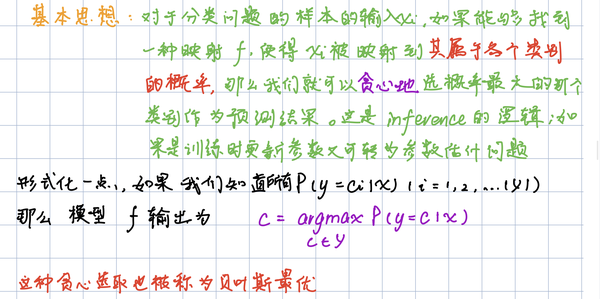 基本思想：对于分类问题的样本的输入xi，如果能够找到
一种映射 f，使得 xi 被映射到其属于各个类别
的概率，那么我们就可以贪心地选概率最大的那个
类别作为预测结果。这是 inference 的逻辑；如
果是训练时更新参数又可转为参数估计问题
形式化一点，如果我们知道所有 P(y=ci|x) (i=1,2,...|y|)
那么 模型 f 输出为 c = argmax P(y=c|x)
c∈y
这种贪心选取也被称为贝叶斯最优